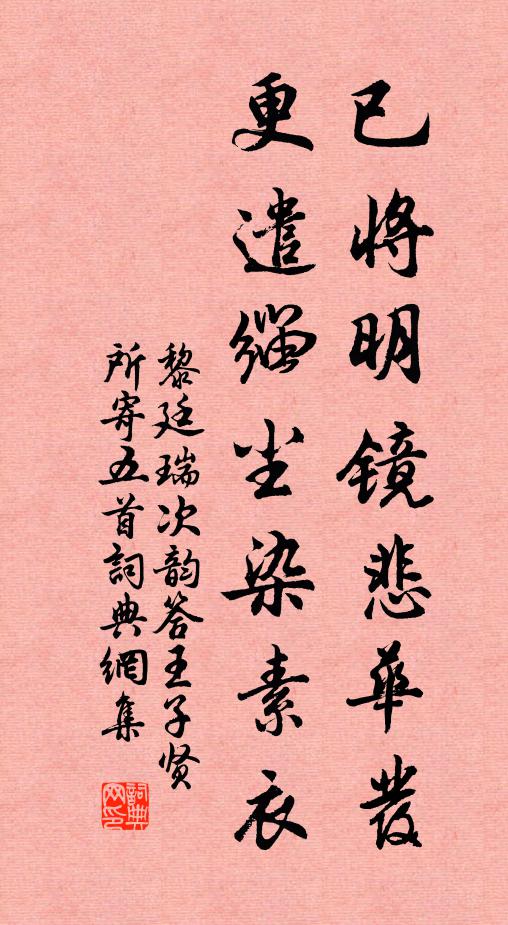 已将明镜悲華發
更遣缁尘染素衣
黎廷瑞次韵答王子贤
所寄五首詞典網集
詞典网印